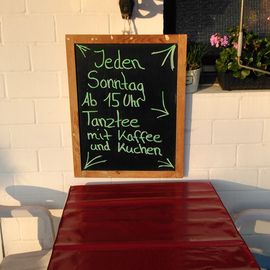 Jeden
Sonntag
Ab 15 Uhr
Tanztee
mit Kaffee
und Kuchen